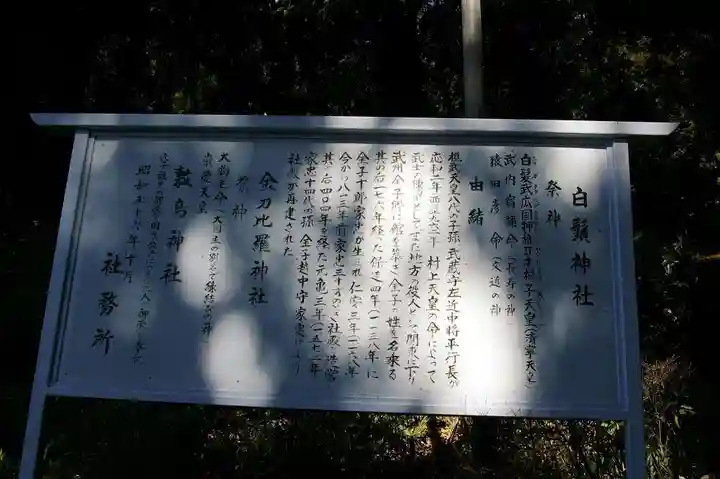 白鬚神社
祭神
白髪武広国押稚日本根子天皇(清寧天皇)
武内宿祢命(長寿の神)
猿田彦命(交通の神)
由緒
桓武天皇八代の子孫 武蔵守左近中将平行長が
応和二年西暦九六二年 村上天皇の命によって
武士の棟梁としてまた地方の役人として関東に下り
武州金子郷に館を築き金子の姓を名乗る
其の后一七六年経った保延四年(一一三八年に
金子十郎家忠が生まれ仁安三年(一一六八年
今から八一三年前家忠三十才のとき社殿を造営
其の后四〇四年を経た元亀三年(一五七二年
家忠十四代の孫 金子越中守家重により
社殿が再建された
金刀比羅神社
祭神
大物主命(大国主の別名で縁結びの神)
崇徳天皇
敷島神社
昭和五十六年十月
社務所